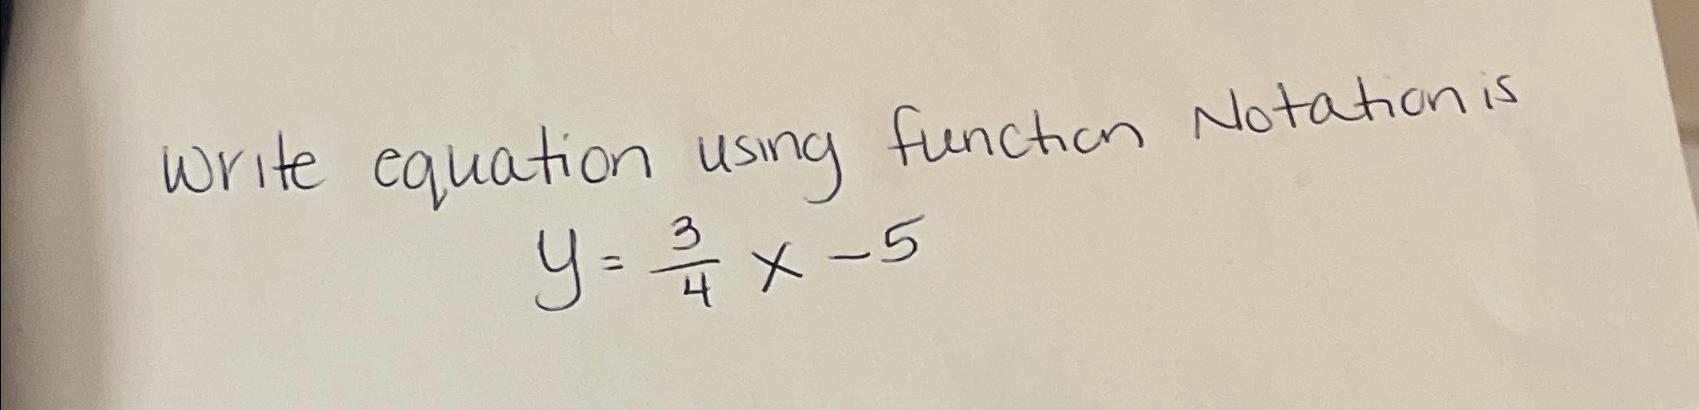 Write equation using function Notation is
y = 3/4 x - 5